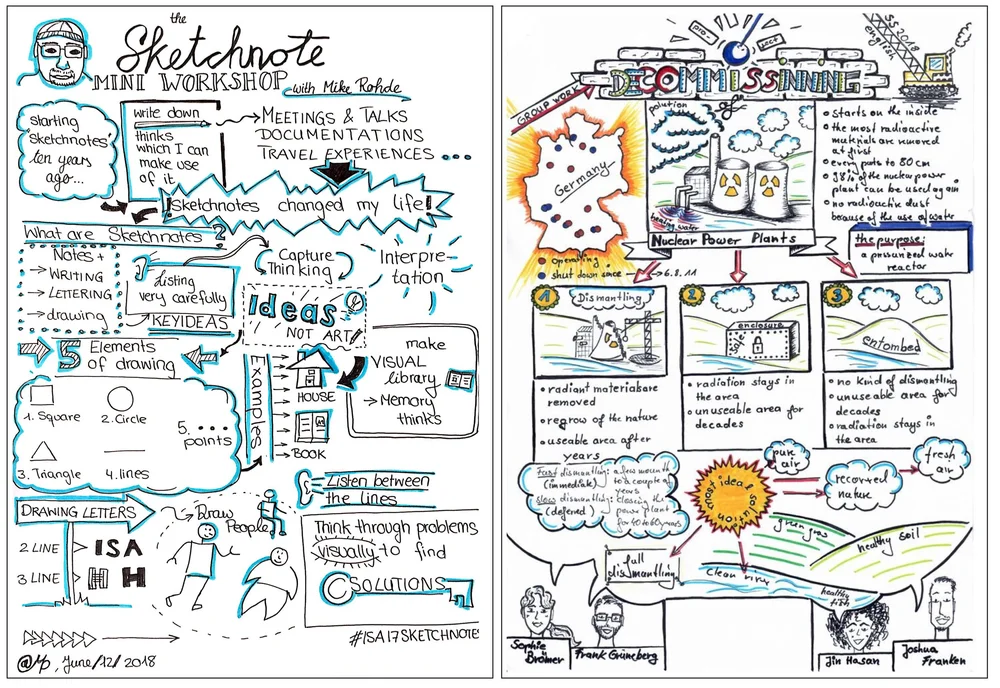 the
Sketchnote
MINI WORKSHOP
with Mike Rohde
starting
Sketchnotes'
ten years
ago...
write down
thinks
which I can
make use
of it
MEETINGS & TALKS
DOCUMENTATIONS
TRAVEL EXPERIENCES ...
!Sketchnotes changed my life!
What are Sketchnotes?
Notes +
→ WRITING
→ LETTERING
→ drawing
listing
very carefully
KEYIDEAS
Capture
Thinking
Interpre-
tation
Ideas
NOT ART!
5 Elements
of drawing
1. Square
2. Circle
3. Triangle
4. lines
5. ....
points
Examples
HOUSE
BOOK
make
VISUAL
library
→ Memory
thinks
Listen between
the lines
DRAWING LETTERS
2 LINE
ISA
3 LINE
H H
Draw
People
Think through problems
visually to find
SOLUTIONS
#ISA17SKETCHNOTE
@Mp, June/12/2018
pro
ject
SS 2018
english
DECOMMISSINNING
of
GROUP WORK
Germany
operating
shut down since → 6.8.11
polution
heating water
Nuclear Power Plants
• starts on the inside
• the most radioactive
materials are removed
at first
• every puts to 80 cm
• 98% of the nuclear power
plant can be used again
• no radioactive dust
because of the use of water
the purpose:
a presurized water
reactor
1
Dismantling
• radiant materialare
removed
• regrow of the nature
• useable area after
years
2
safe
enclosure
• radiation stays in
the area
• unuseable area for
decades
3
entombed
• no kind of dismantling
• unuseable area for
decades
• radiation stays in
the area
Fast dismantling: a few mounth
(immediate) to a couple of
years
slow dismantling: closing the
(defered) power plant
for 40 to 60 years
most ideal solution
pure
air
recovered
nature
fresh
air
green gras
healthy soil
full
dismantling
clean river
healthy
fish
Sophie
Brömer
Frank Grüneberg
Jin Hasan
Joshua
Franken